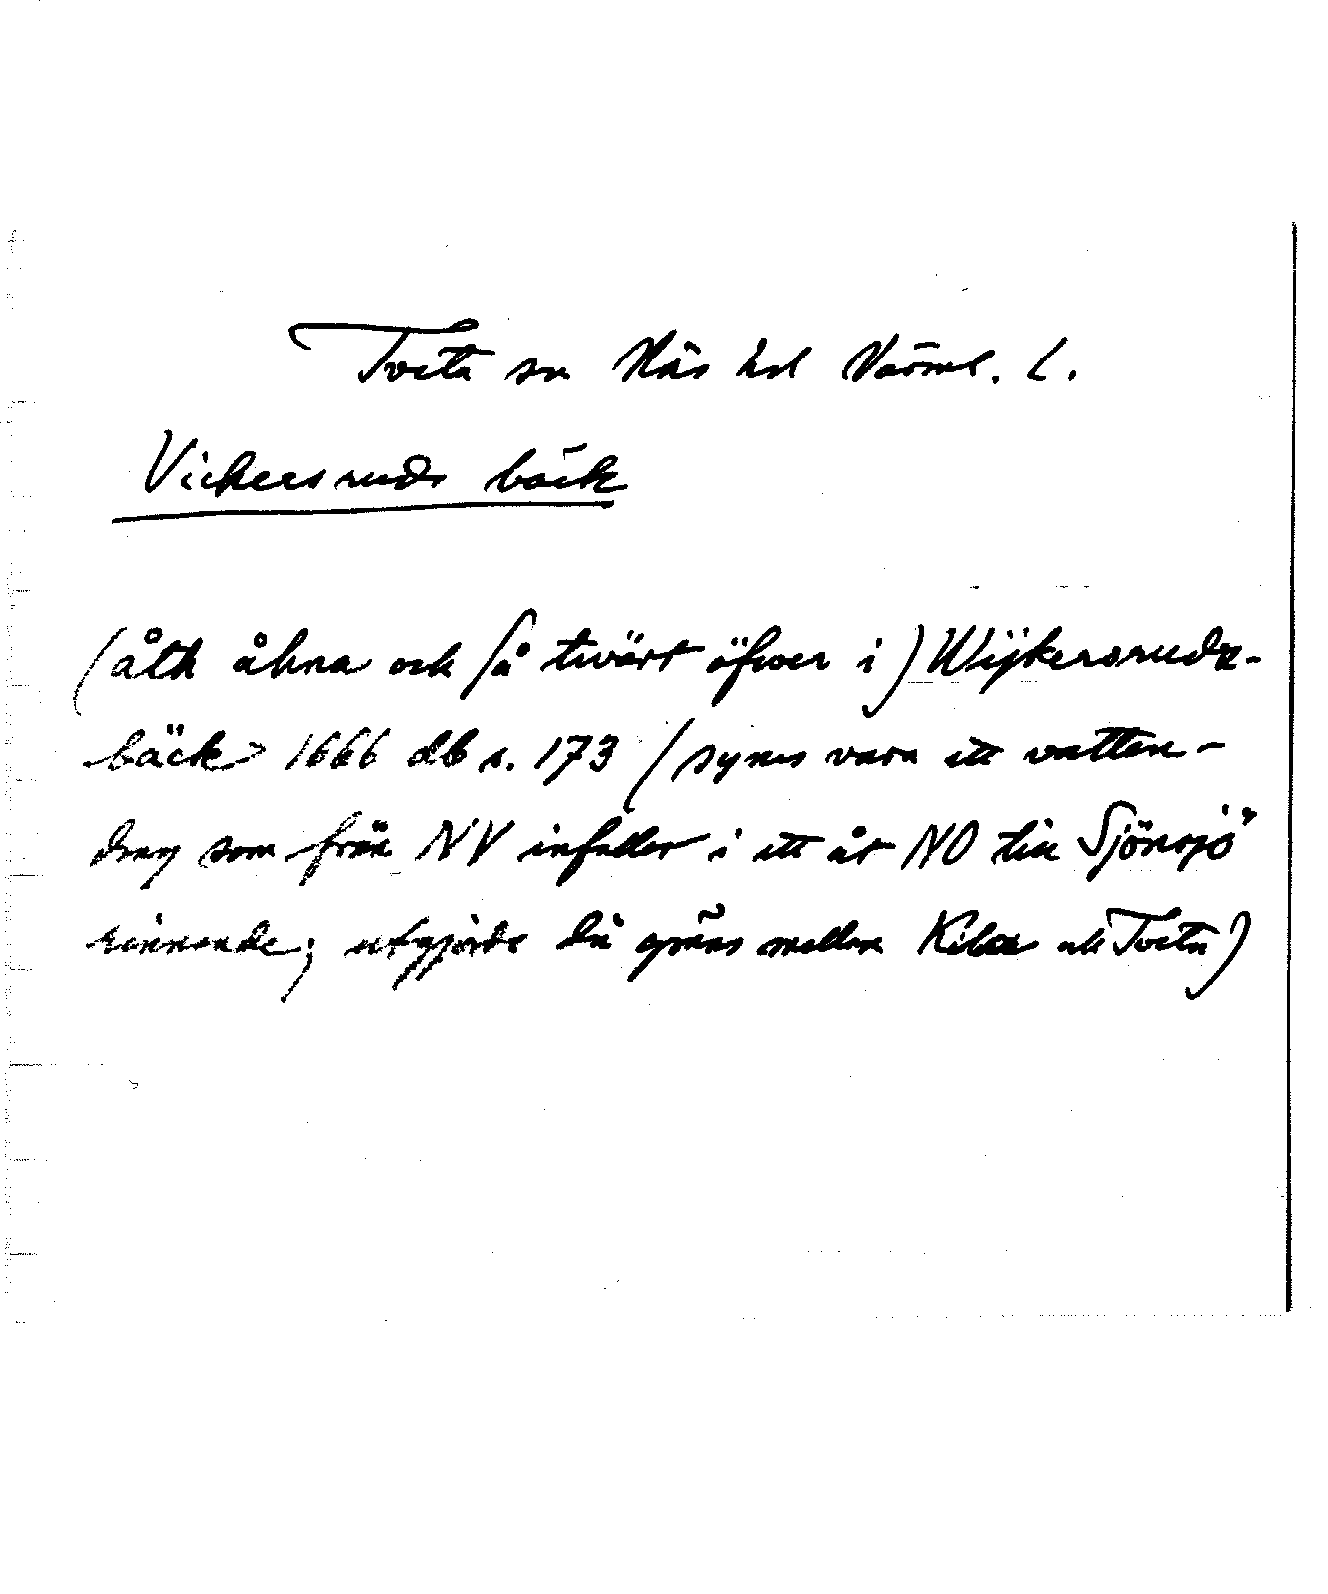 Tveta sn Näs hd Värml. l.
Vickersruds bäck
(åth åhna och så twärt öfwer i) Wijkersrudz-
bäck 1666 db s. 173 (synes vara ett vatten-
drag som från NV infaller i ett åt NO till Sjönsjö
rinnande; utgjorde då gräns mellan Kila och Tveta)